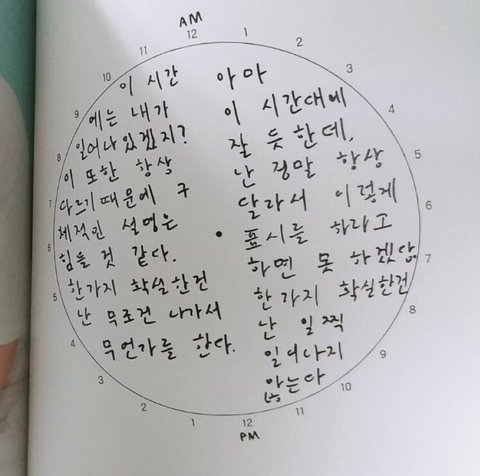 AM
12
1
2
3
4
5
6
7
8
9
10
11
12
PM
1
2
3
4
5
6
7
8
9
10
11
이 시간
에는 내가
일어나있겠지?
이 또한 항상
다르기때문에 구
체적인 설명은
힘들 것 같다.
한가지 확실한건
난 무조건 나가서
무언가를 한다.
아마
이 시간대에
잘 듯한데,
난 정말 항상
달라서 이렇게
표시를 하라고
하면 못 하겠당.
한가지 확실한건
난 일찍
일어나지
않는다